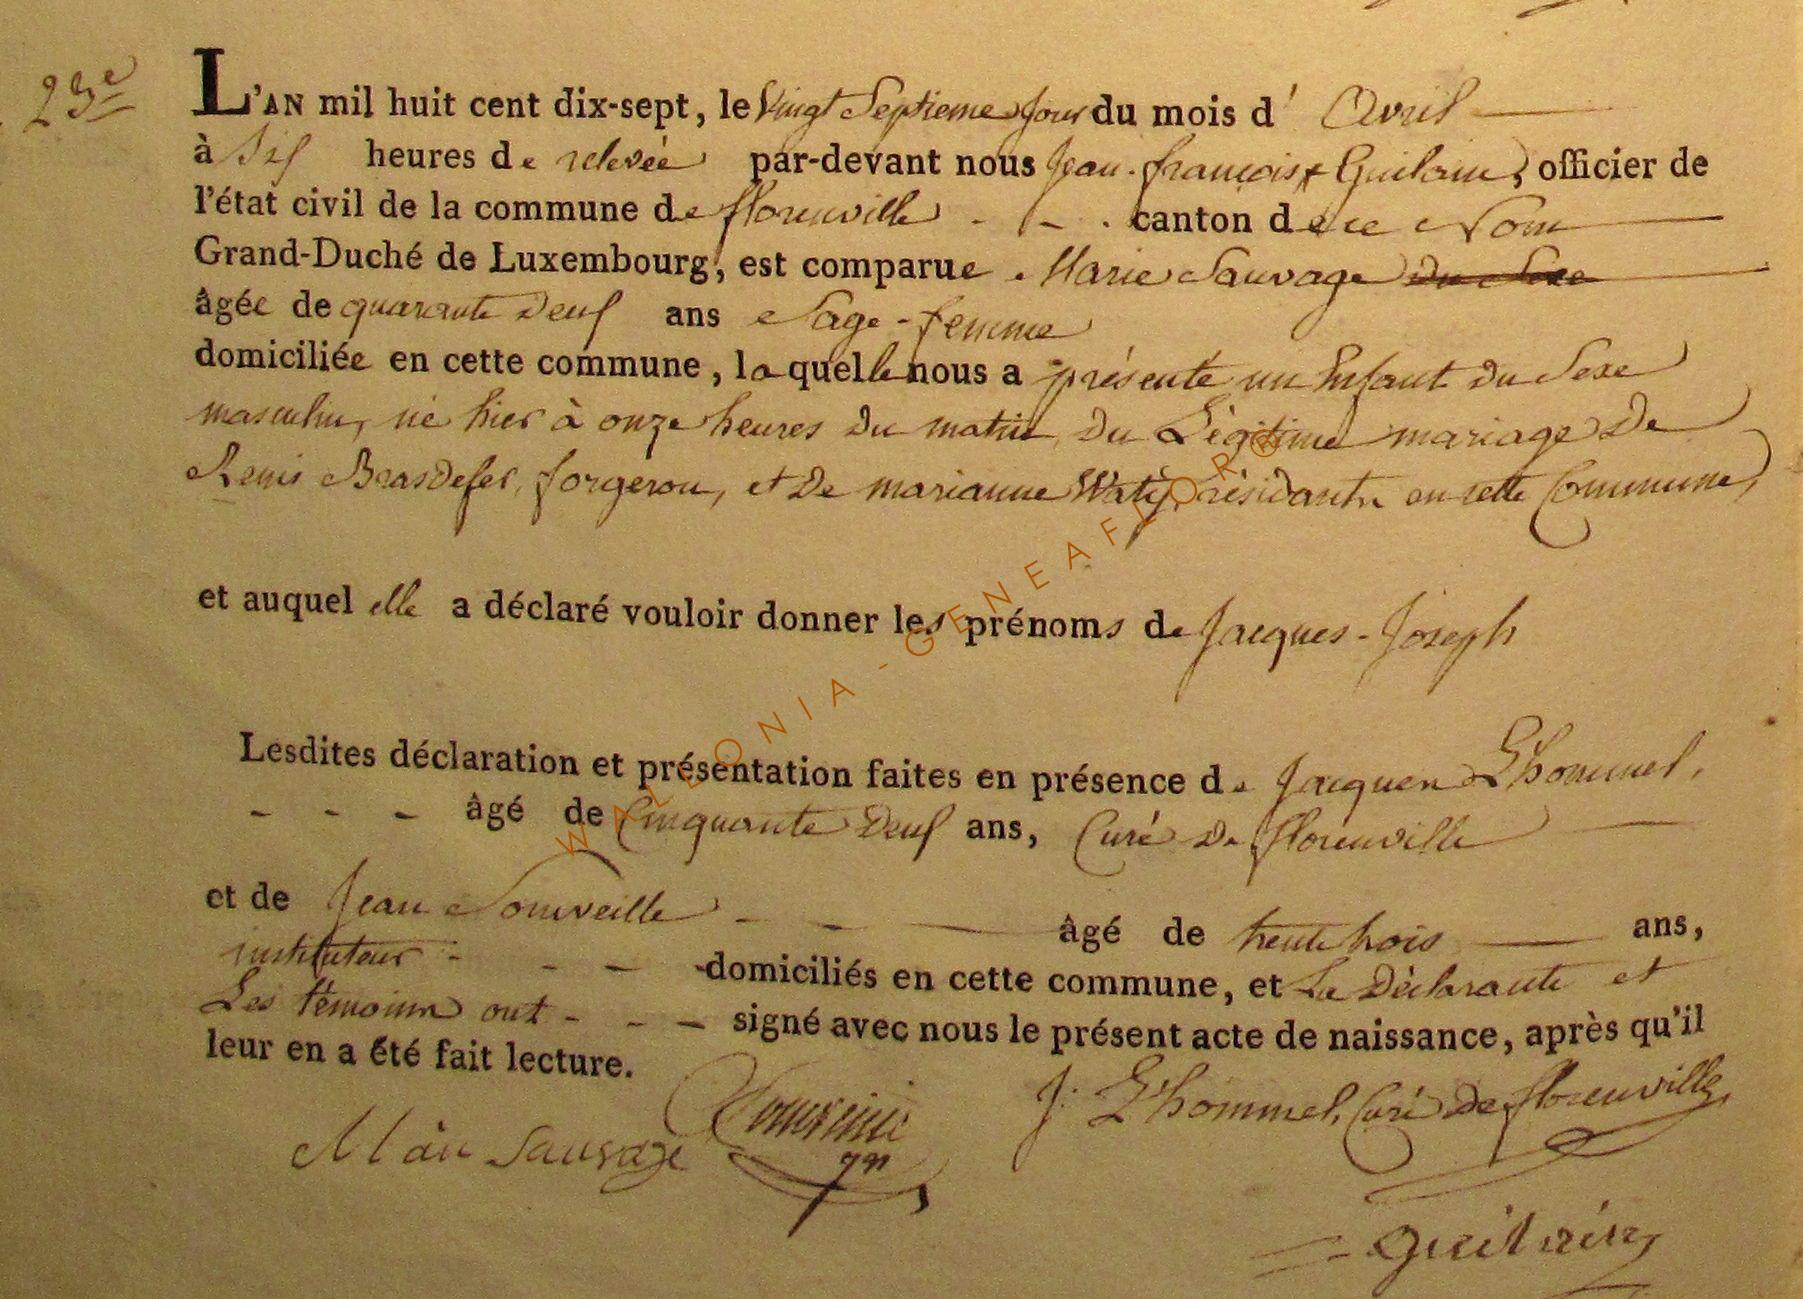 23e
L'AN mil huit cent dix-sept, le vingt Septieme jour du mois d' Avril
à six heures de relevée par-devant nous Jean-françois Guilain, officier de
l'état civil de la commune de florenville canton de ce Nom
Grand-Duché de Luxembourg, est comparue Marie Sauvage du Sexe
âgée de quarante Deux ans Sage-femme
domiciliée en cette commune, laquelle nous a présenté un Enfant du Sexe
masculin, né hier à onze heures du matin, du Légitime mariage De
Remis Brasdefer, forgeron, et De marianne Waty, résidants en cette Commune,
et auquel elle a déclaré vouloir donner les prénoms de Jacques-Joseph
Lesdites déclaration et présentation faites en présence de Jacques L'hommel,
âgé de Cinquante Deux ans, Curé De florenville
et de Jean âgé de trente trois ans,
instituteur domiciliés en cette commune, et La Déclarante et
Les témoins ont signé avec nous le présent acte de naissance, après qu'il
leur en a été fait lecture.
J. L'hommel, Curé De florenville
Sauvage
Guilain
WALLONIA-GENEAFLOR©